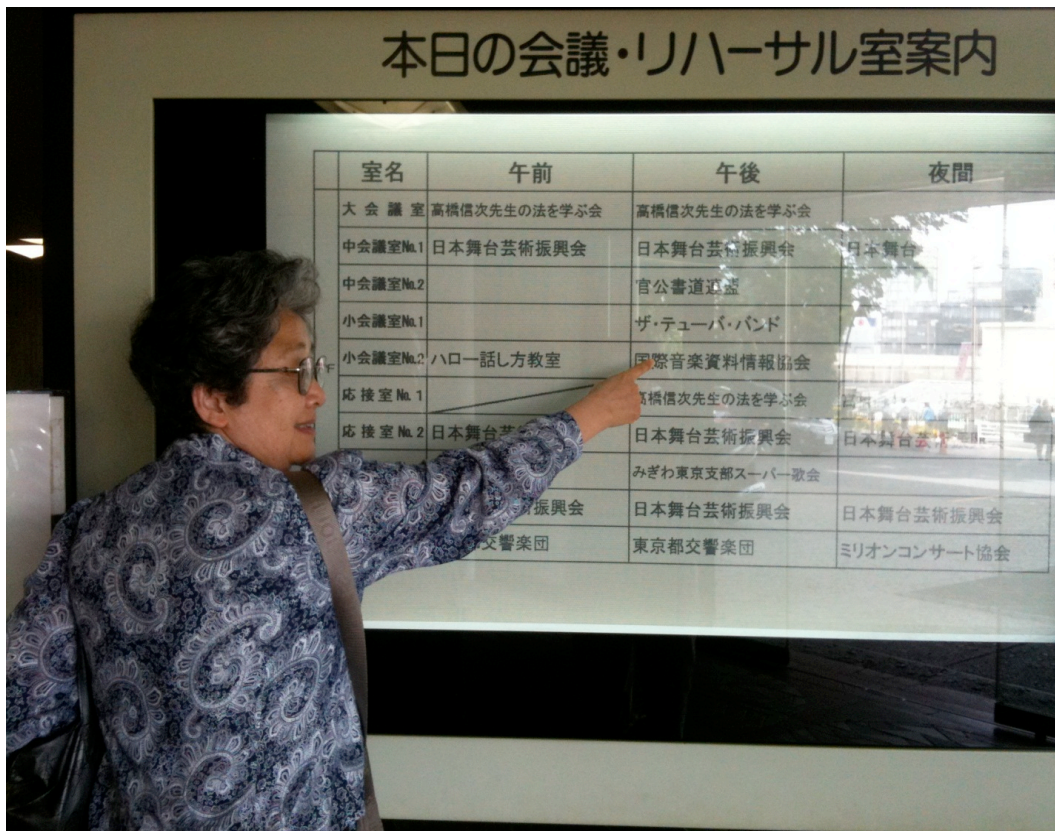 本日の会議・リハーサル室案内
室名 午前 午後 夜間
大会議室 高橋信次先生の法を学ぶ会 高橋信次先生の法を学ぶ会
中会議室No.1 日本舞台芸術振興会 日本舞台芸術振興会 日本舞台
中会議室No.2 官公書道連盟
小会議室No.1 ザ・テューバ・バンド
小会議室No.2 ハロー話し方教室 国際音楽資料情報協会
応接室No.1 高橋信次先生の法を学ぶ会
応接室No.2 日本舞台芸 日本舞台芸術振興会 日本舞台芸
みぎわ東京支部スーパー歌会
術振興会 日本舞台芸術振興会 日本舞台芸術振興会
交響楽団 東京都交響楽団 ミリオンコンサート協会